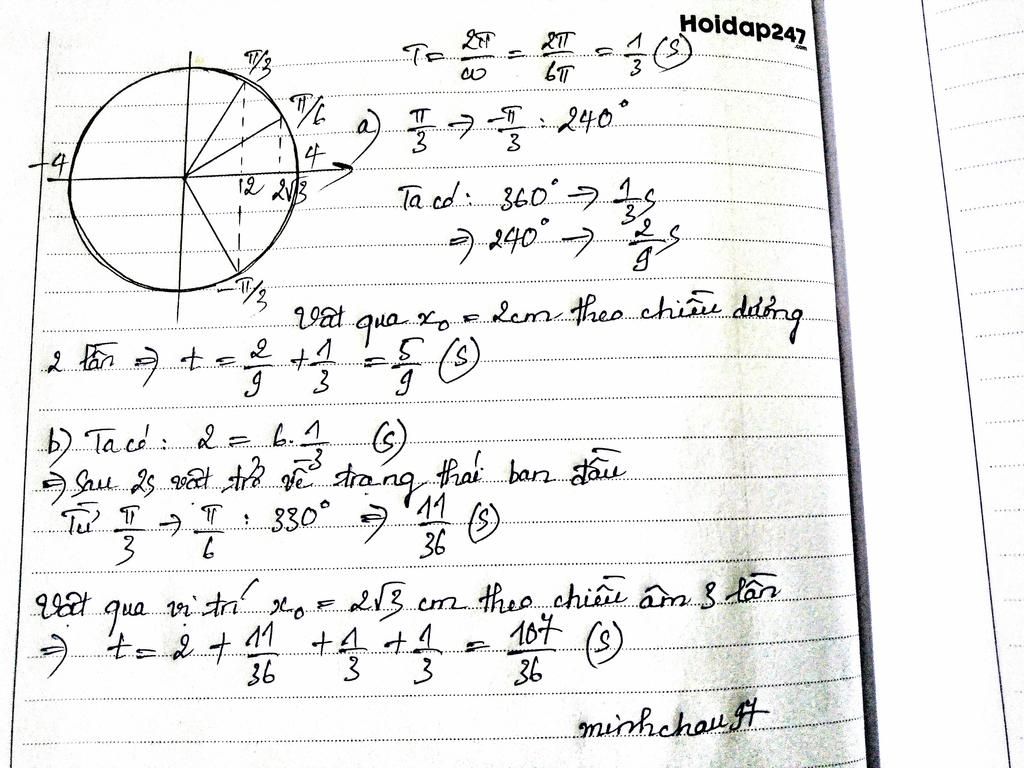 Hoidap247.com
T = 2π/ω = 2π/6π = 1/3 (s)
π/3
π/6
-4
4
2
2√3
-π/3
a) π/3 → -π/3 : 240°
Ta có: 360° → 1/3 s
⇒ 240° → 2/9 s
Vật qua x₀ = 2cm theo chiều dương
2 lần ⇒ t = 2/9 + 1/3 = 5/9 (s)
b) Ta có: 2 = 6.1/3 (s)
⇒ Sau 2s vật trở về trạng thái ban đầu
Từ π/3 → π/6 : 330° ⇒ 11/36 (s)
Vật qua vị trí x₀ = 2√3 cm theo chiều âm 3 lần
⇒ t = 2 + 11/36 + 1/3 + 1/3 = 107/36 (s)
minhchau97